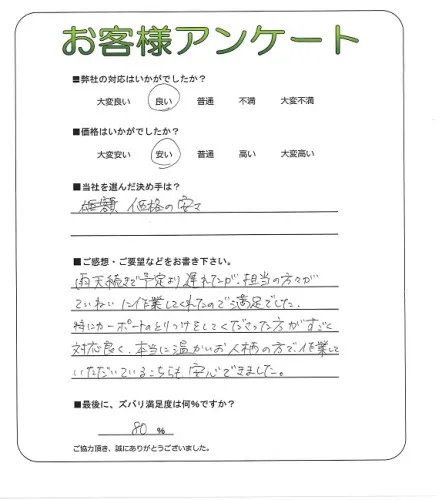 お客様アンケート
■弊社の対応はいかがでしたか?
大変良い 良い 普通 不満 大変不満
■価格はいかがでしたか?
大変安い 安い 普通 高い 大変高い
■当社を選んだ決め手は?
価格の安さ
■ご感想・ご要望などをお書き下さい。
雨天続きで予定より遅れたが、担当の方々が
ていねいに作業してくれたので満足でした。
特にカーポートのとりつけをしてくださった方がすごく
対応良く、本当に温かいお人柄の方で、作業して
いただいているこちらも安心できました。
■最後に、ズバリ満足度は何%ですか?
80 %
ご協力頂き、誠にありがとうございました。